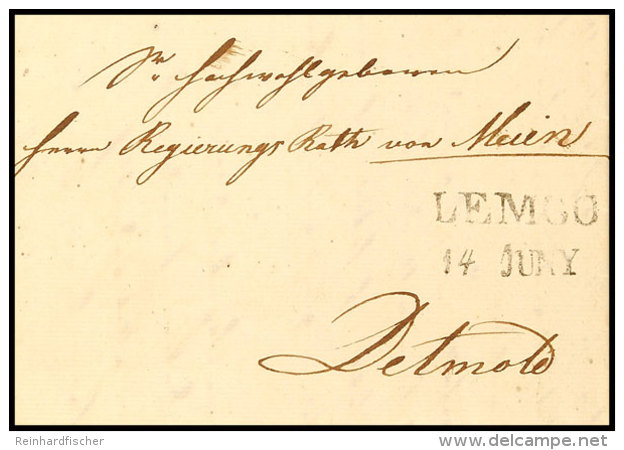 Sr. Hochwohlgeboren
Herrn Regierungs Rath von Meien
LEMGO
14 JUNY
Detmold
Reinhardfischer
www.delcampe.net